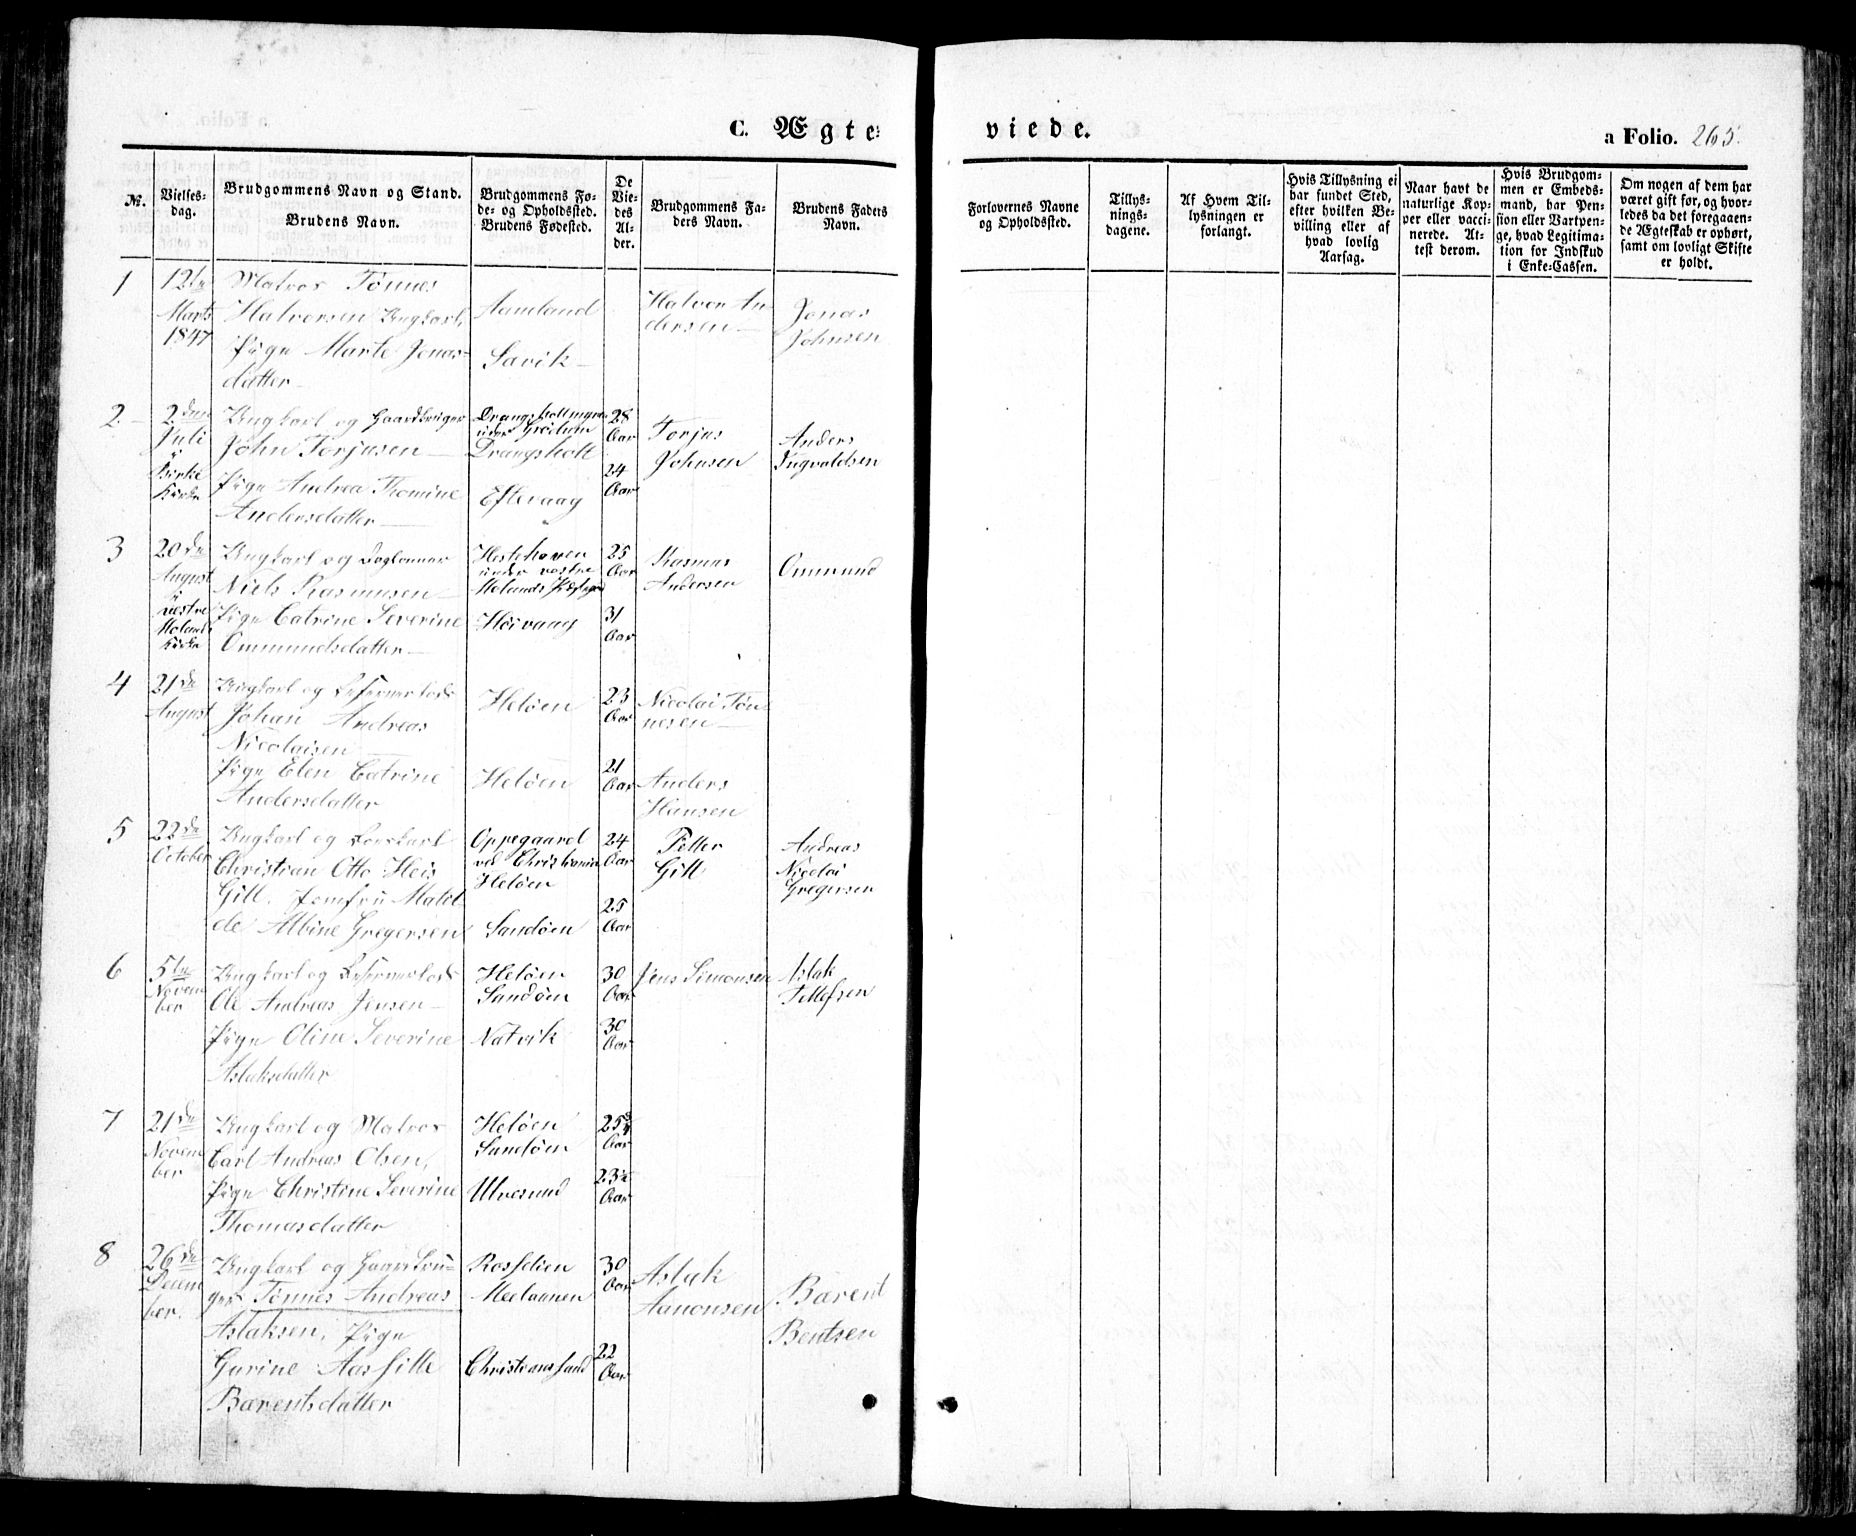 C. Ægte=
viede.
a Folio. 265.
№.
Vielses-
dag.
Brudgommens Navn og Stand.
Brudens Navn.
Brudgommens Fø-
de- og Opholdsted.
Brudens Fødested.
De
Vie-
des
Al-
der.
Brudgommens Fa-
ders Navn.
Brudens Faders
Navn.
Forlovernes Navne
og Opholdsted.
Tillys-
nings-
dagene.
Af Hvem Til-
lysningen er
forlangt.
Hvis Tillysning ei
har fundet Sted,
efter hvilken Be-
villing eller af
hvad lovlig
Aarsag.
Naar havt de
naturlige Kop-
per eller vacci-
nerede. At-
test derom.
Hvis Brudgom-
men er Embeds-
mand, har Pen-
sion eller Vartpen-
ge, hvad Legitima-
tion for Indskud
i Enke-Cassen.
Om nogen af dem har
været gift før, og hvor-
ledes da det foregaaen-
de Ægteskab er ophørt,
samt om lovligt Skifte
er holdt.
1
12te
Marts
1847
Matros Tönnes
Halvorsen Ungkarl,
Pige Marte Jonas-
datter
Aamland
Savik
Halvor An
dersen
Jonas
Johnsen
2
2den
Juli
i
Birke
Kirke
Ungkarl og Gaardbruger
John Torjusen
Pige Andrea Thomine
Andersdatter
Drangsholtmyren
under
Drangsholt
Eftevaag
28
Aar
24
Aar
Torjus
Johnsen
Anders
Ingvaldsen
3
20de
August
i
vestre
Molands
Kirke
Ungkarl og Daglönner
Niels Rasmusen
Pige Catrine Severine
Ommundsdatter
Hestehaven
under vestre
Molands Præstegd
Höivaag
25
Aar
31
Aar
Rasmus
Andersen
Ommund
4
21de
August
Ungkarl og Reservelods
Johan Andreas
Nicolaisen
Pige Elen Catrine
Andersdatter
Helöen
Helöen
23
Aar
21
Aar
Nicolai Tön
nesen
Anders
Hansen
5
22de
October
Ungkarl og
Christian Otto Heis
Gill, Jomfru Matil
de Albine Gregersen
Oppegaard
ved Christiania
Helöen
Sandöen
24
Aar
25
Aar
Petter
Gill
Andreas
Nicolai
Gregersen
6
5te
Novem
ber
Ungkarl og Reservelods
Ole Andreas Jensen
Pige Oline Severine
Aslaksdatter
Helöen
Sandöen
Natvik
30
Aar
30
Aar
Jens Simonsen
Aslak
Tellefsen
7
21de
Novem
ber
Ungkarl og Matros
Carl Andreas Olsen,
Pige Christine Severine
Thomasdatter
Helöen
Sandöen
Ulvesund
25¾
Aar
23½
Aar
8
26de
Decem
ber.
Ungkarl og Gaardbru-
ger Tönnes Andreas
Aslaksen, Pige
Gurine Aassille
Bærentsdatter
Rosselien
Christianssand
30
Aar
22
Aar
Aslak
Aanonsen
Bærent
Bentsen